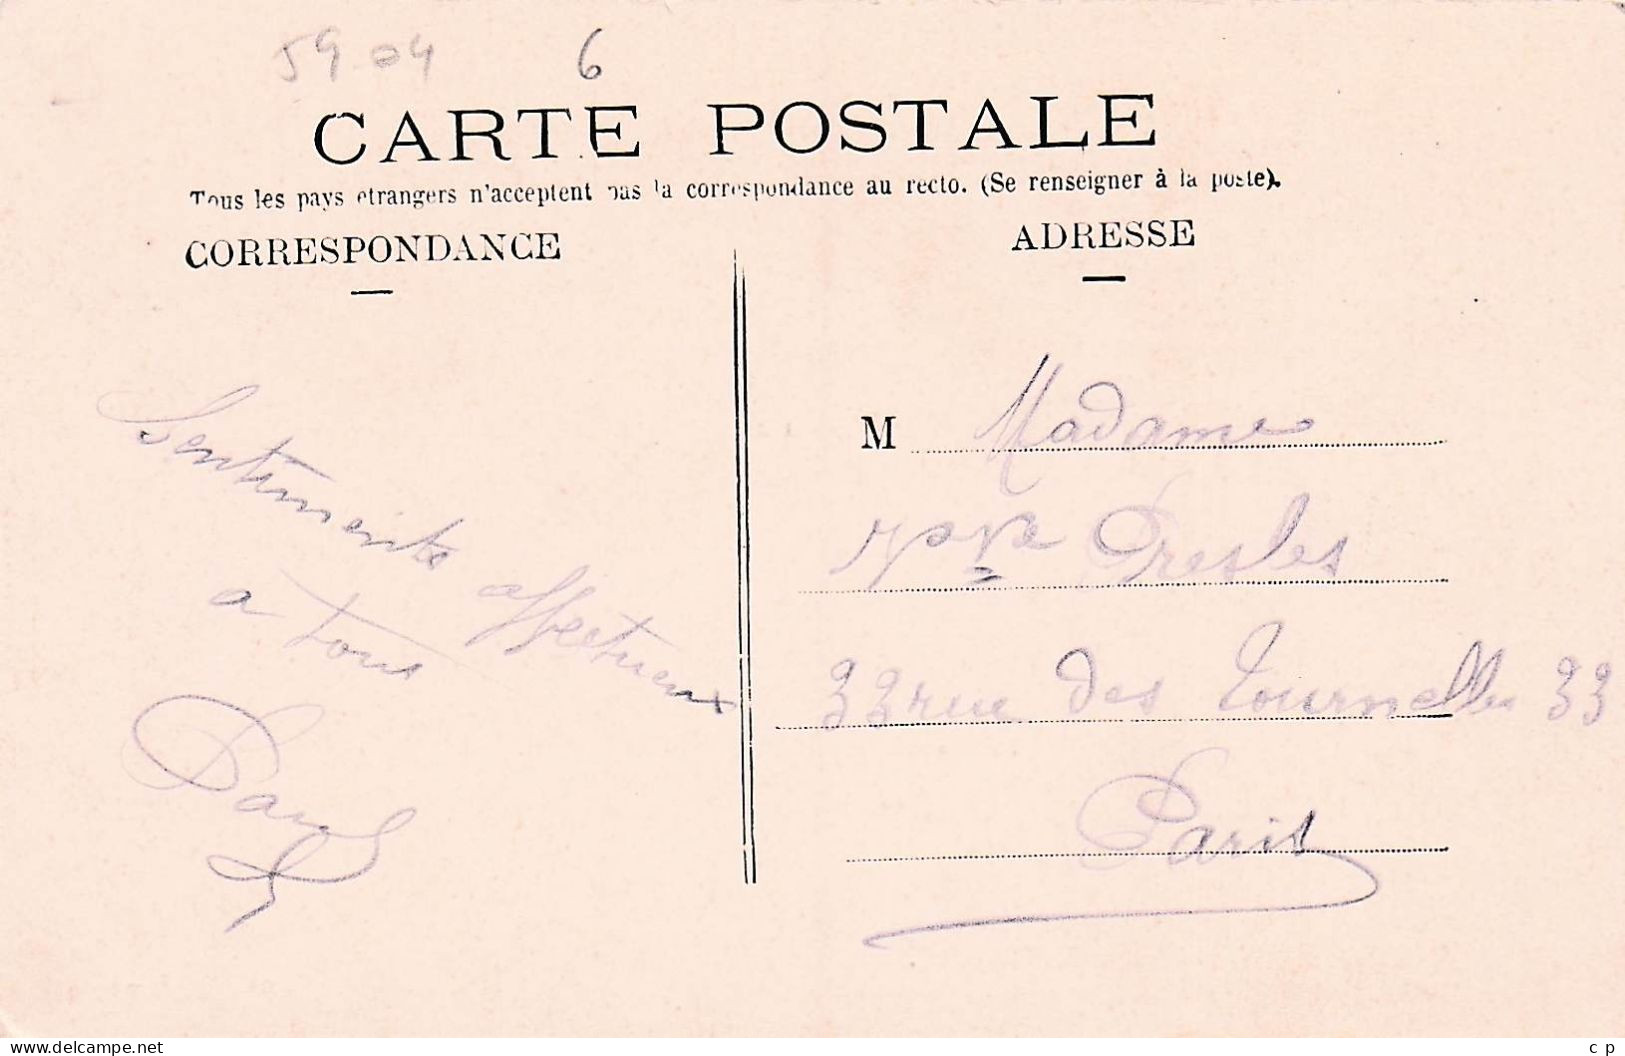 59.04 6
CARTE POSTALE
Tous les pays etrangers n'acceptent pas la correspondance au recto. (Se renseigner à la poste).
CORRESPONDANCE
Sentiments affectueux
a tous
Paul
ADRESSE
M Madame
Vve Presles
33 rue des Tournelles 33
Paris
delcampe.net
c p